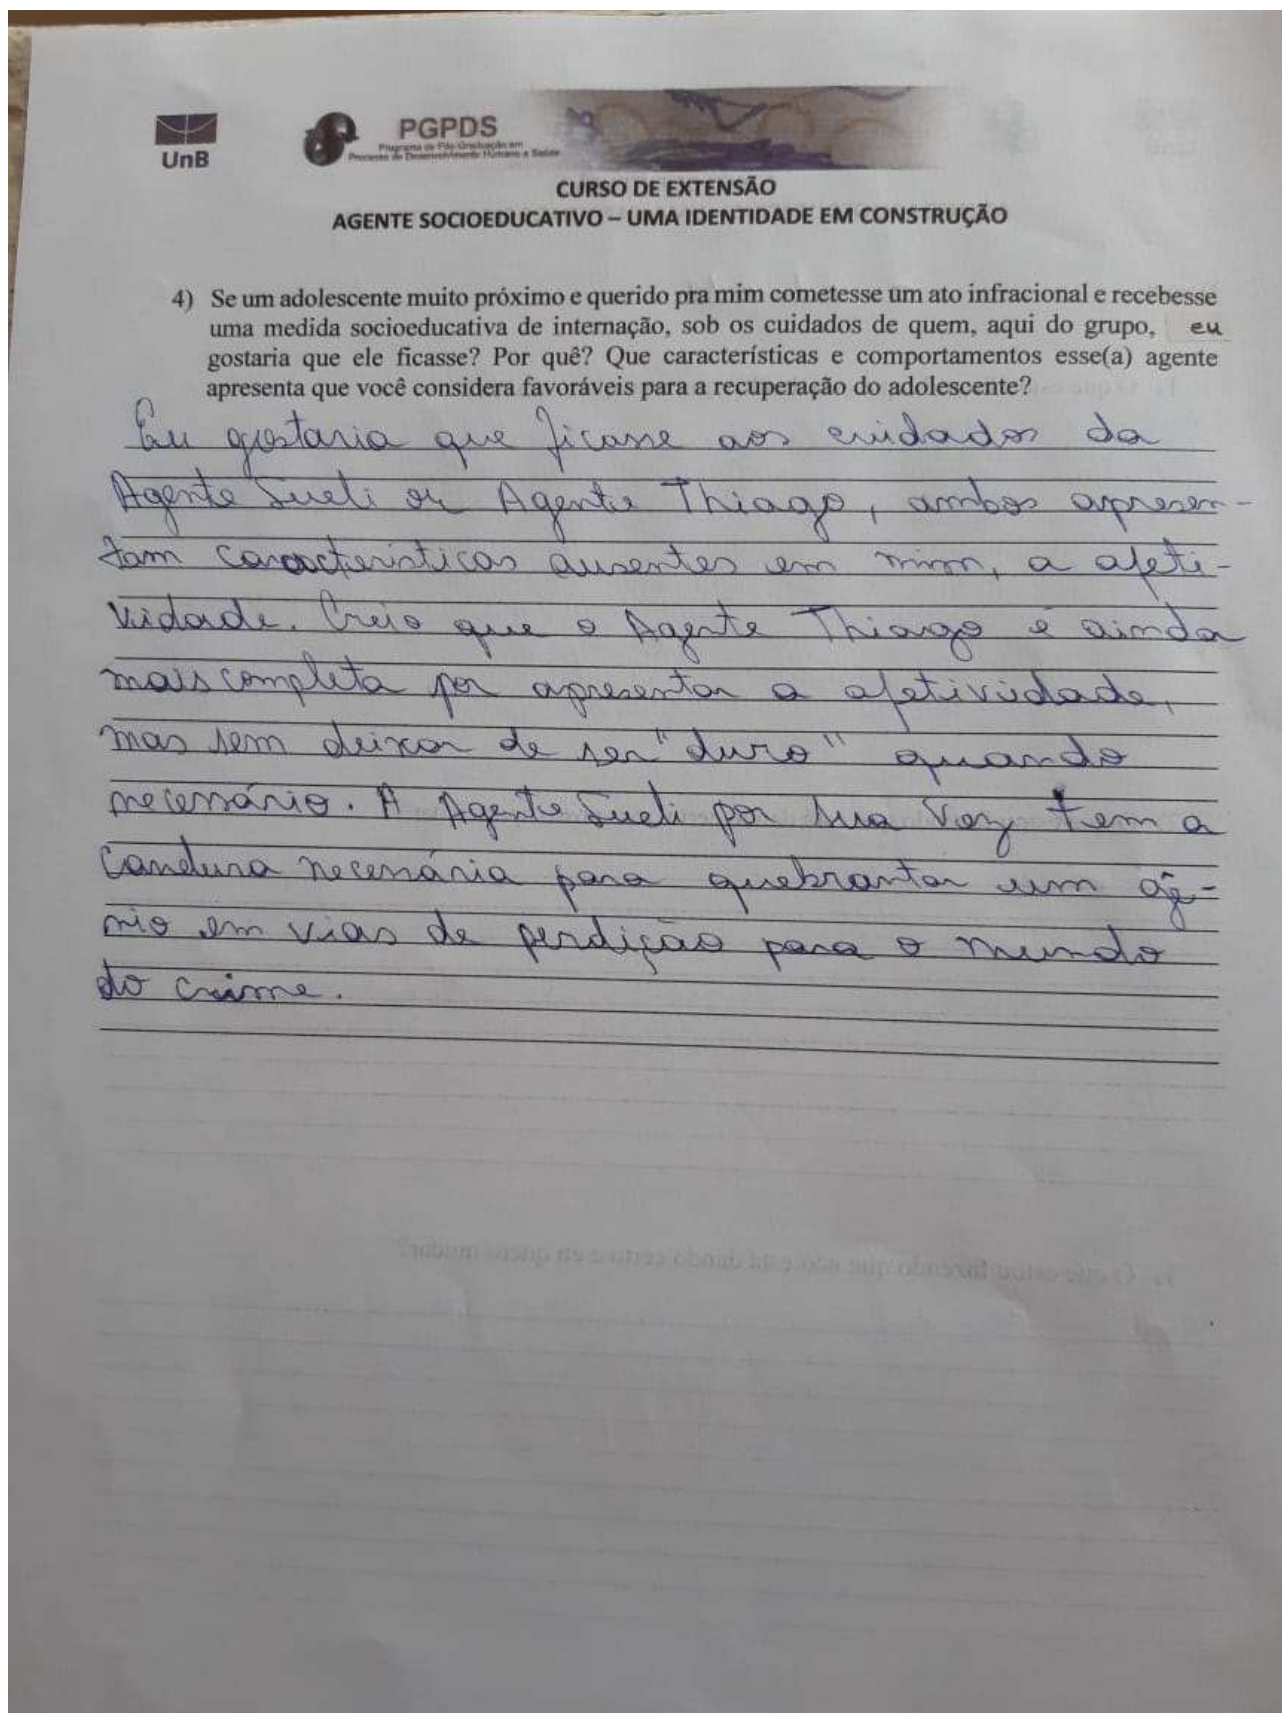 UnB
PGPDS
Programa de Pós-Graduação em
Processo de Desenvolvimento Humano e Saúde
CURSO DE EXTENSÃO
AGENTE SOCIOEDUCATIVO – UMA IDENTIDADE EM CONSTRUÇÃO
4) Se um adolescente muito próximo e querido pra mim cometesse um ato infracional e recebesse
uma medida socioeducativa de internação, sob os cuidados de quem, aqui do grupo, eu
gostaria que ele ficasse? Por quê? Que características e comportamentos esse(a) agente
apresenta que você considera favoráveis para a recuperação do adolescente?
Eu gostaria que ficasse aos cuidados da
Agente Sueli ou Agente Thiago, ambos apresen-
tam características ausentes em mim, a afeti-
vidade. Creio que o Agente Thiago é ainda
mais completa por apresentar a afetividade,
mas sem deixar de ser "duro" quando
necessário. A Agente Sueli por sua vez tem a
candura necessária para quebrantar um
em vias de perdição para o mundo
do crime.
3) O que estou fazendo que não está dando certo e eu quero mudar?